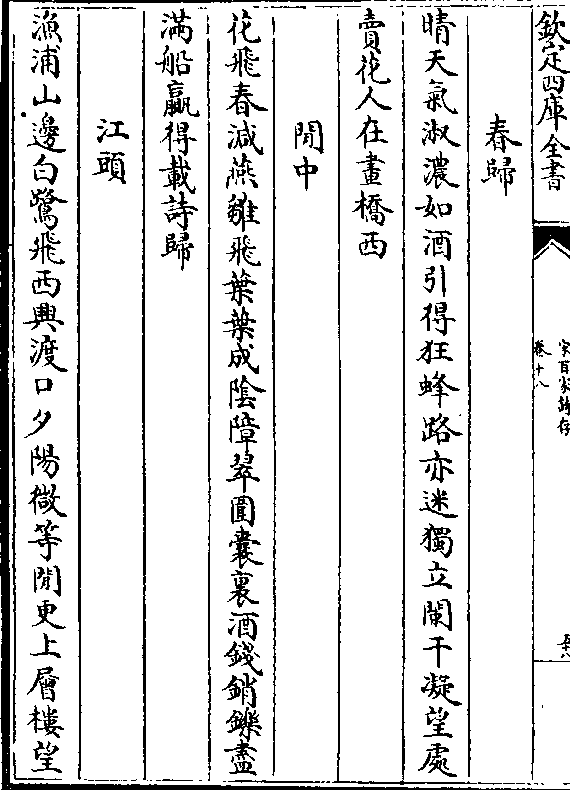 欽定四庫全書
宋百家詩存
卷十八
春歸
晴天氣淑濃如酒引得狂蜂路亦迷獨立闌干凝望處
賣花人在畫橋西
閒中
花飛春減燕雛飛葉葉成陰障翠圍囊裏酒錢銷鑠盡
滿船贏得載詩歸
江頭
漁浦山邊白鷺飛西興渡口夕陽微等閒更上層樓望